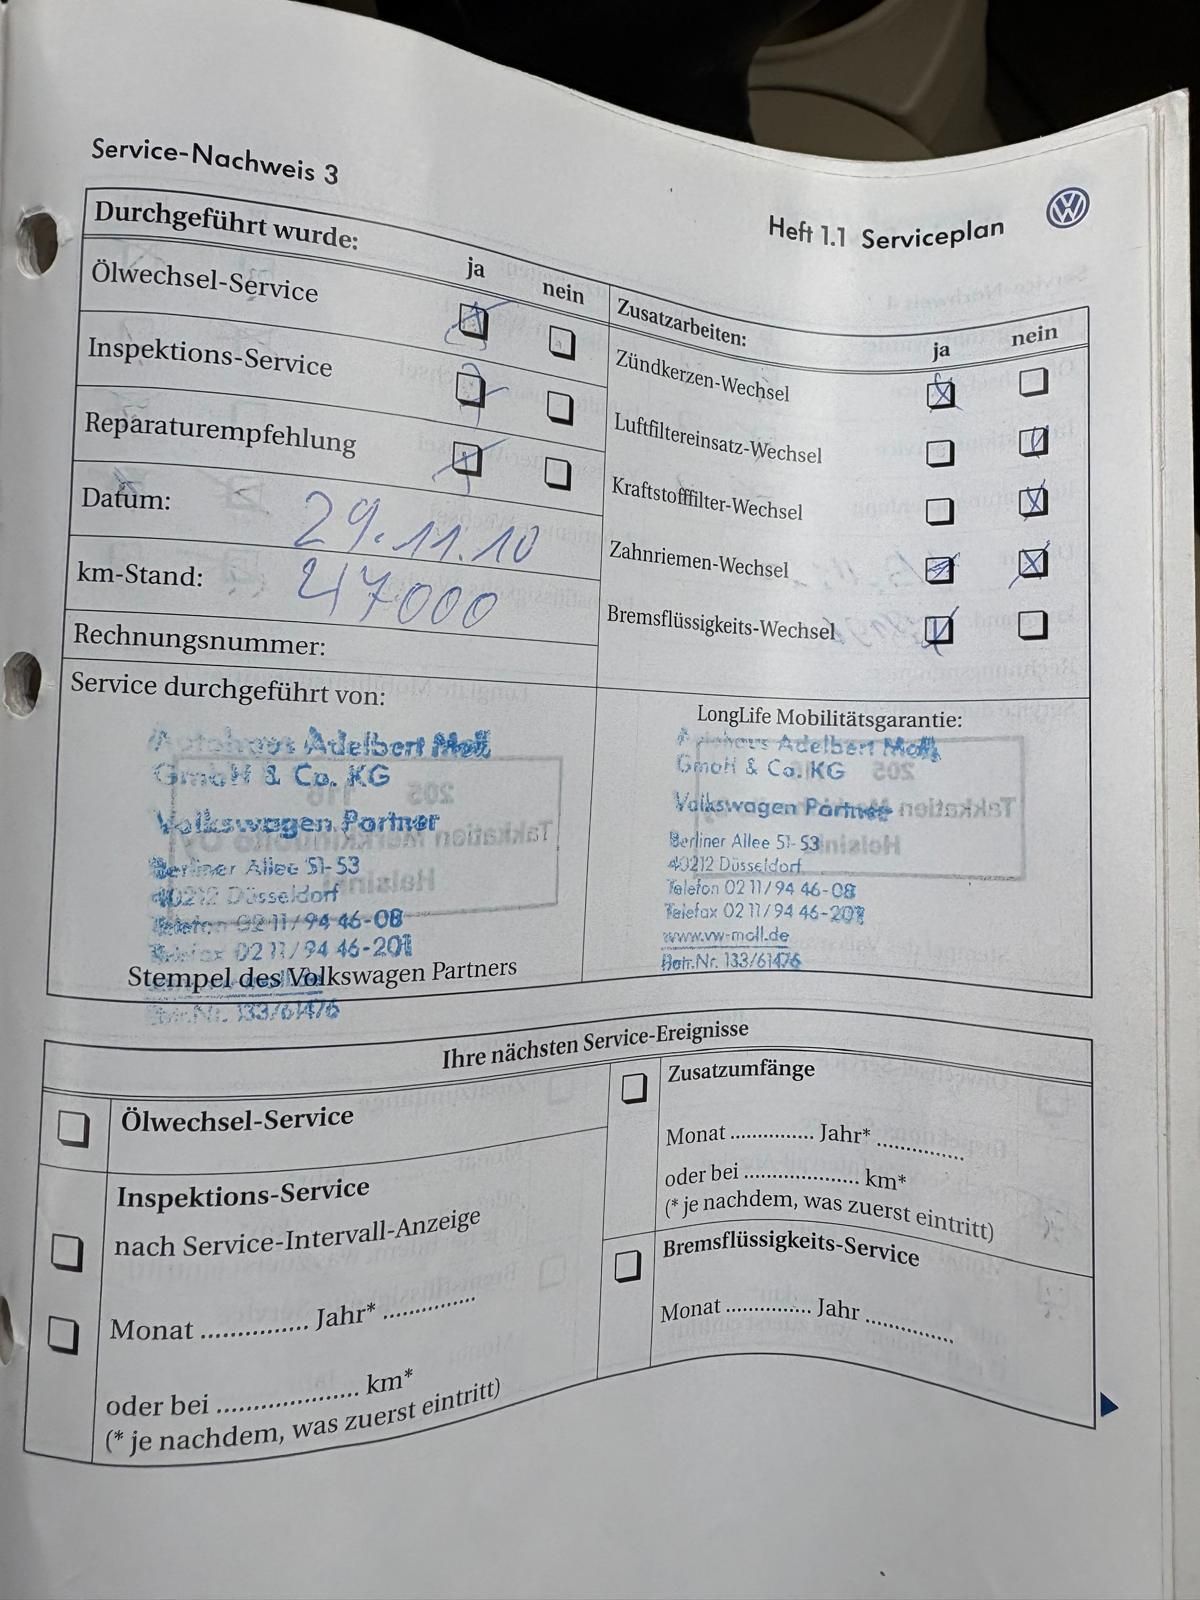 Service-Nachweis 3
Heft 1.1 Serviceplan
Durchgeführt wurde:
ja
nein
Ölwechsel-Service
Inspektions-Service
Reparaturempfehlung
Datum:
29.11.10
km-Stand:
47000
Rechnungsnummer:
Zusatzarbeiten:
ja
nein
Zündkerzen-Wechsel
Luftfiltereinsatz-Wechsel
Kraftstofffilter-Wechsel
Zahnriemen-Wechsel
Bremsflüssigkeits-Wechsel
Service durchgeführt von:
Autohaus Adelbert Moll
GmbH & Co. KG
Volkswagen Partner
Berliner Allee 51-53
40212 Düsseldorf
Telefon 02 11/94 46-08
Telefax 02 11/94 46-201
Stempel des Volkswagen Partners
Betr.Nr. 133/61476
LongLife Mobilitätsgarantie:
Autohaus Adelbert Moll
GmbH & Co. KG
Volkswagen Partner
Berliner Allee 51-53
40212 Düsseldorf
Telefon 02 11/94 46-08
Telefax 02 11/94 46-201
www.vw-moll.de
Betr.Nr. 133/61476
Ihre nächsten Service-Ereignisse
Ölwechsel-Service
Inspektions-Service
nach Service-Intervall-Anzeige
Monat ............... Jahr* .............
oder bei .................... km*
(* je nachdem, was zuerst eintritt)
Zusatzumfänge
Monat ............... Jahr* ...............
oder bei .................... km*
(* je nachdem, was zuerst eintritt)
Bremsflüssigkeits-Service
Monat ............... Jahr ...............